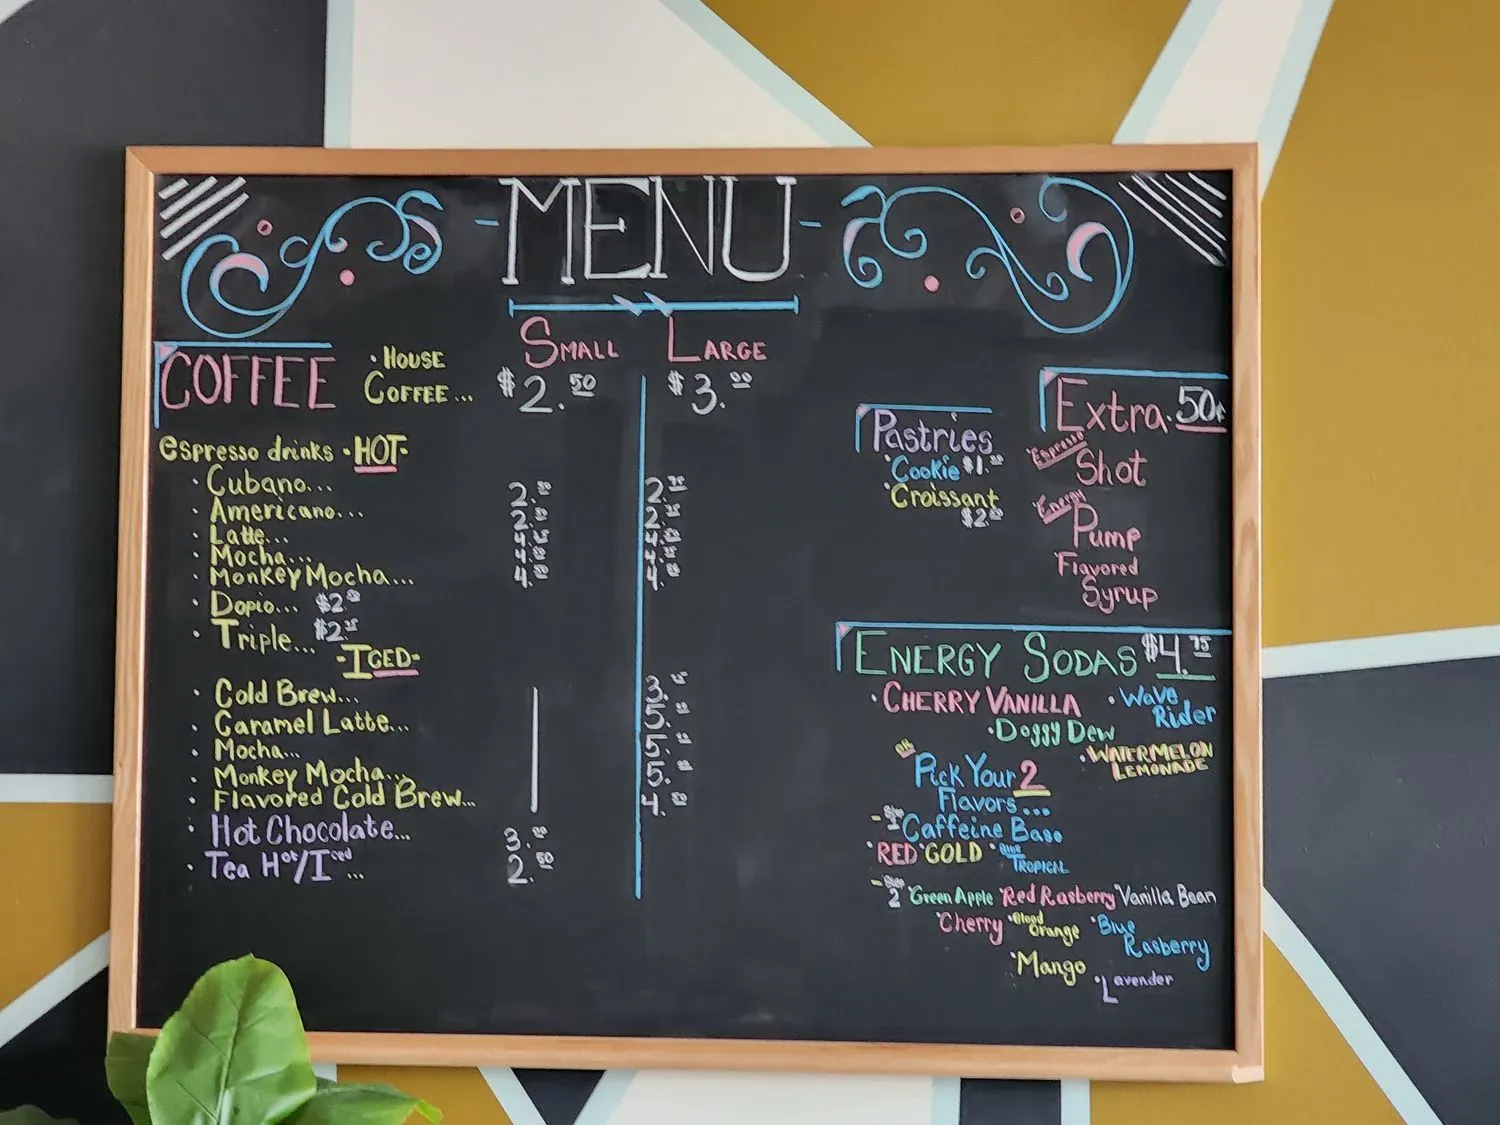 -MENU-
SMALL LARGE
COFFEE
· HOUSE
COFFEE... $2.50 $3.00
espresso drinks ·HOT·
· Cubano... 2. 2.
· Americano... 2. 2.
· Latte... 4. 4.
· Mocha... 4. 4.
· Monkey Mocha... 4. 4.
· Dopio... $2.
· Triple... $2.
-ICED-
· Cold Brew... 3.
· Caramel Latte... 5.
· Mocha... 5.
· Monkey Mocha... 5.
· Flavored Cold Brew... 4.50
· Hot Chocolate... 3.
· Tea Hot/Iced ... 2.50
Pastries
·Cookie $1.
·Croissant
$2.
Extra· 50¢
·Espresso
Shot
·Energy
Pump
Flavored
Syrup
ENERGY SODAS $4.75
·CHERRY VANILLA
·Wave
Rider
·Doggy Dew
·WATERMELON
LEMONADE
OR
Pick Your 2
Flavors...
- Step
1 Caffeine Base
·RED ·GOLD ·Blue
TROPICAL
- Step
2 ·Green Apple ·Red Rasberry ·Vanilla Bean
·Cherry ·Blood
Orange ·Blue
Rasberry
·Mango
·Lavender